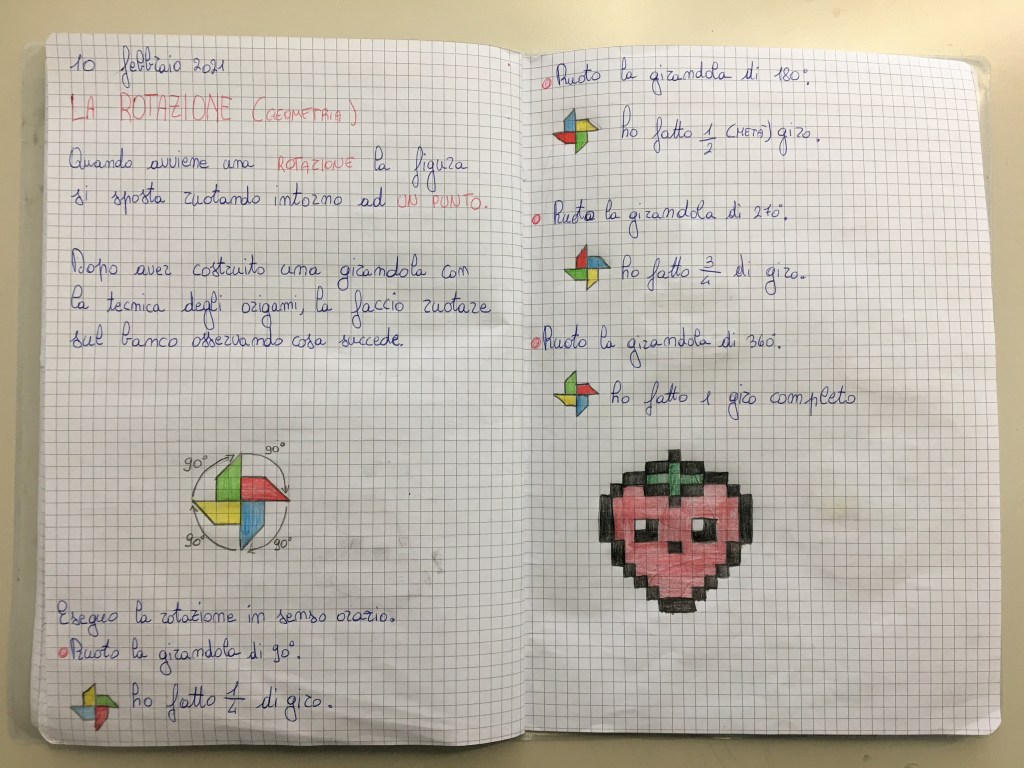 10 febbraio 2021
LA ROTAZIONE (GEOMETRIA)
Quando avviene una ROTAZIONE la figura
si sposta ruotando intorno ad UN PUNTO.
Dopo aver costruito una girandola con
la tecnica degli origami, la faccio ruotare
sul banco osservando cosa succede.
90° 90°
90° 90°
Eseguo la rotazione in senso orario.
Ruoto la girandola di 90°.
ho fatto 1/4 di giro.
Ruoto la girandola di 180°.
ho fatto 1/2 (METÀ) giro.
Ruoto la girandola di 270°.
ho fatto 3/4 di giro.
Ruoto la girandola di 360°.
ho fatto 1 giro completo